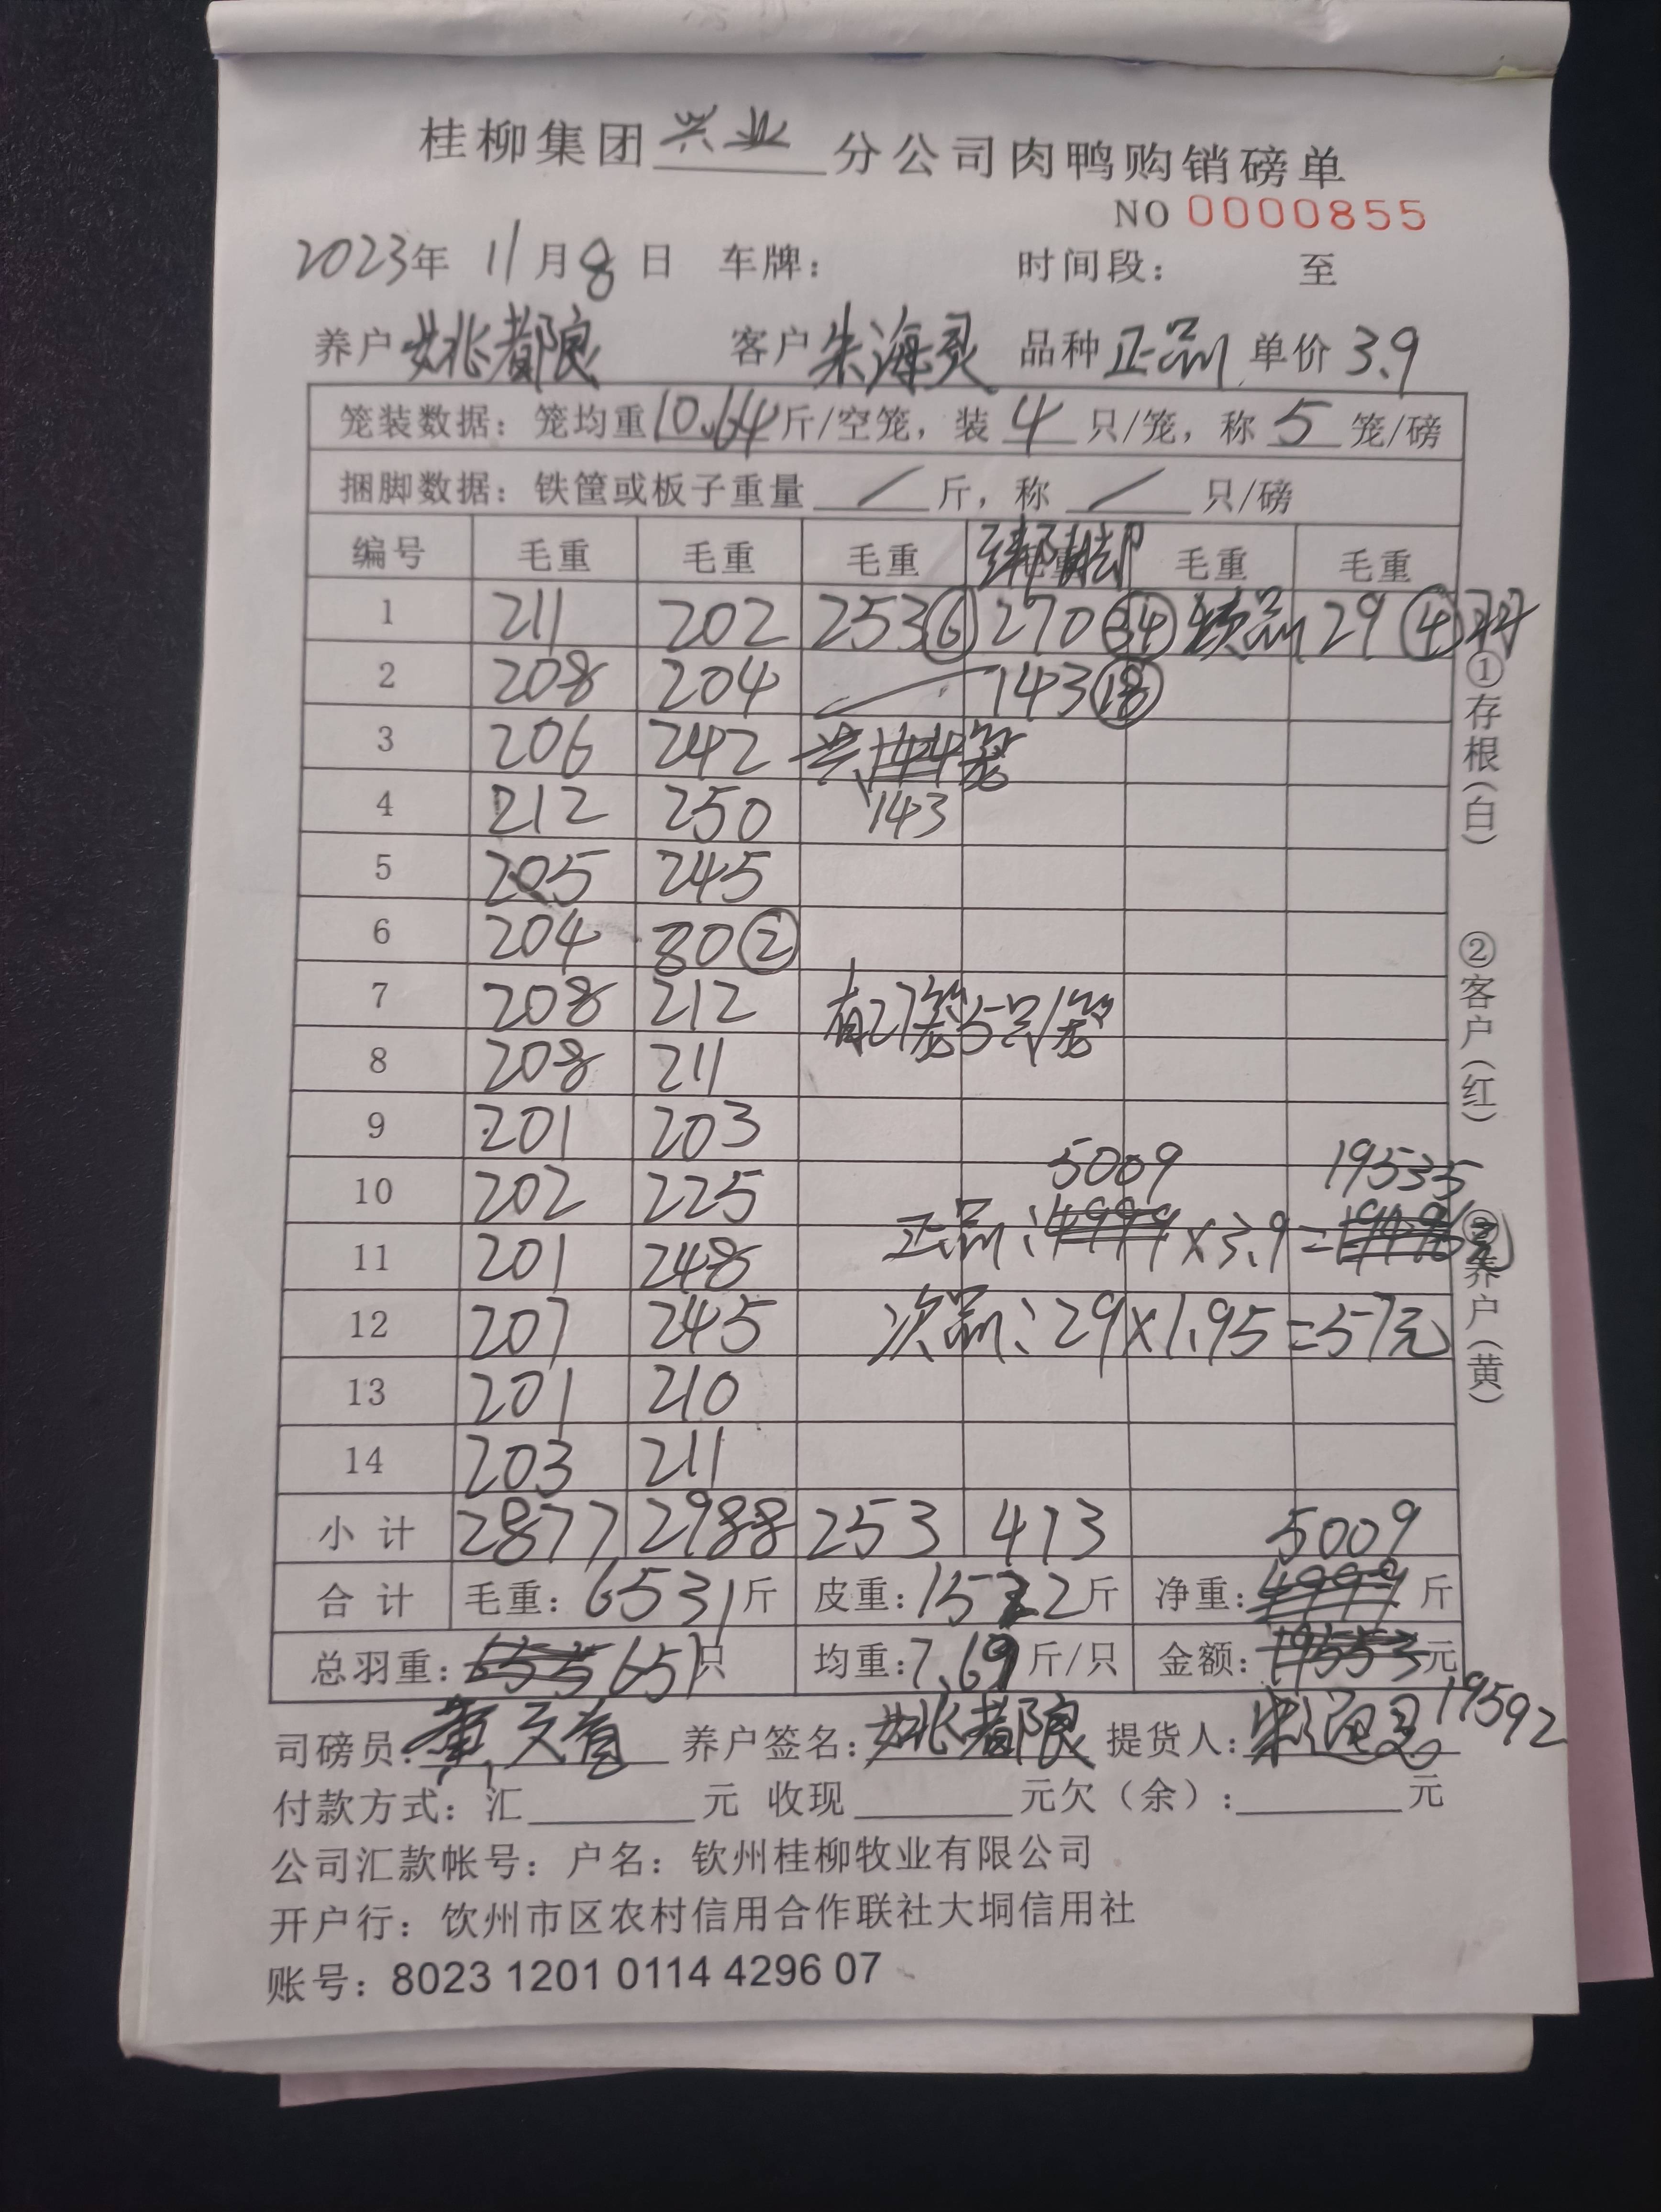 桂柳集团兴业分公司肉鸭购销磅单
NO 0000855
2023年 11月8日 车牌： 时间段： 至
养户 姚都良 客户 朱海灵 品种 正品 单价 3.9
笼装数据：笼均重10.64斤/空笼，装 4 只/笼，称 5 笼/磅
捆脚数据：铁筐或板子重量 / 斤，称 / 只/磅
编号 毛重 毛重 毛重 毛重 毛重 毛重
1 211 202 253⑥ 270㉞ 次品 29 ④
2 208 204 143⑱
3 206 242 共144笼
4 212 250 143
5 205 245
6 204 80②
7 208 212 有27笼5只/笼
8 208 211
9 201 203
5009 19535
10 202 225
正品：4999×3.9=
11 201 248
12 207 245 次品：29×1.95=57元
13 201 210
14 203 211
小计 2877 2988 253 413 5009
合计 毛重：6531斤 皮重：1522斤 净重：4999斤
总羽重：655 651只 均重：7.69斤/只 金额：19553元
19592
司磅员： 养户签名：姚都良 提货人：朱海灵
付款方式：汇 元 收现 元欠（余）： 元
公司汇款帐号：户名：钦州桂柳牧业有限公司
开户行：钦州市区农村信用合作联社大垌信用社
账号：8023 1201 0114 4296 07
①存根（白） ②客户（红） ③养户（黄）